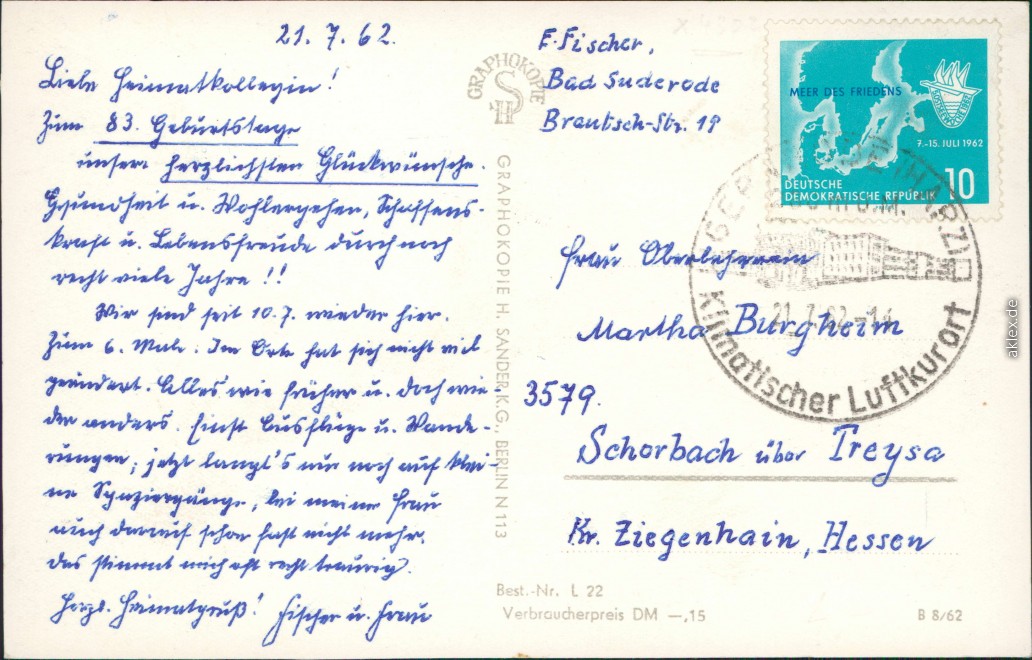 21. 7. 62.
Liebe Heimatkollegin!
Zum 83. Geburtstage
unsere herzlichsten Glückwünsche.
Gesundheit u. Wohlergehen, Schaffens-
kraft u. Lebensfreude durch noch
recht viele Jahre!!
Wir sind seit 10.7. wieder hier.
Zum 6. Male. Im Orte hat sich nicht viel
geändert. Alles wie früher u. doch wie-
der anders. Einst Ausflüge u. Wande-
rungen, jetzt langt's nur noch auf klei-
ne Spaziergänge, bei meiner Frau
auch darauf schon fast nicht mehr.
Das stimmt mich oft recht traurig.
Herzl. Heimatgruß! Fischer u. Frau
GRAPHOKOPIE
S
H
GRAPHOKOPIE H. SANDER K.G., BERLIN N 113
F. Fischer,
Bad Suderode
Brautsch-Str. 19
MEER DES FRIEDENS
OSTSEEWOCHE
7.-15. JULI 1962
DEUTSCHE
DEMOKRATISCHE REPUBLIK 10
(HARZ)
21.7.62-14
Klimatischer Luftkurort
Frau Oberlehrerin
Martha Burgheim
3579.
Schorbach über Treysa
Kr. Ziegenhain, Hessen
Best.-Nr. L 22
Verbraucherpreis DM —,15
B 8/62
aklex.de